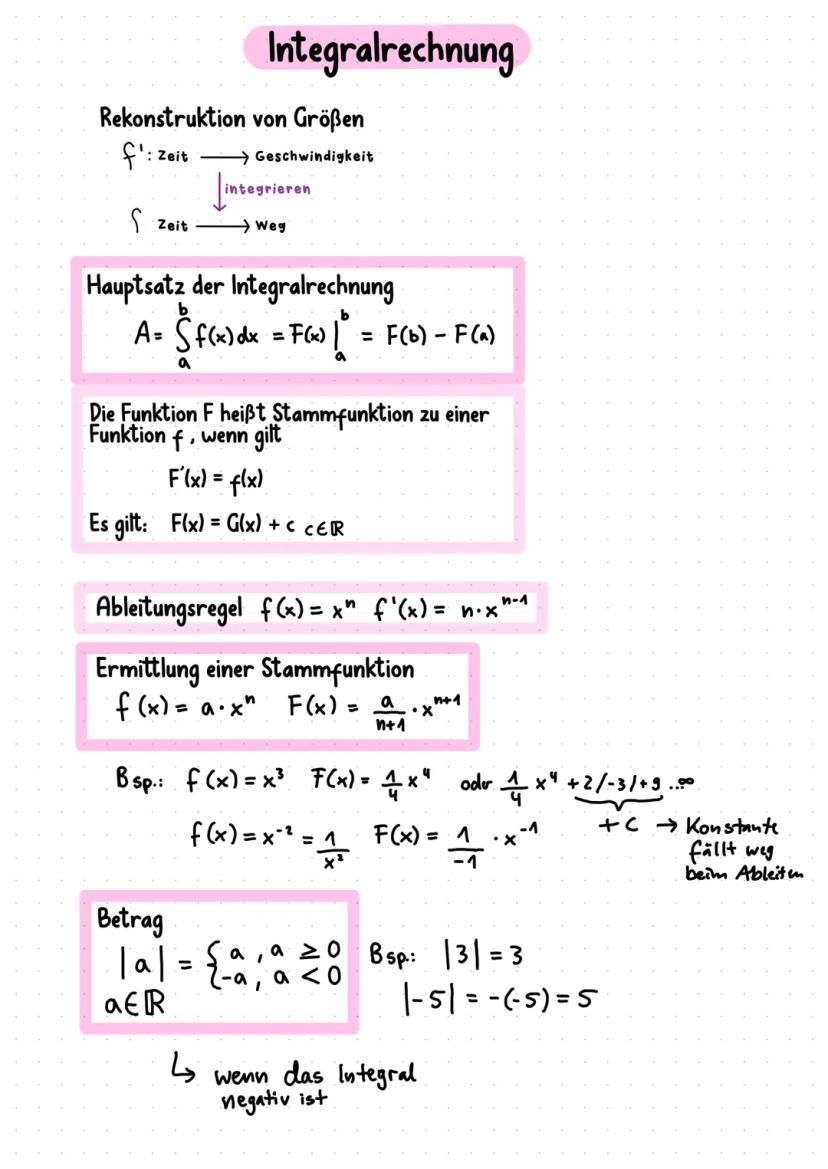 Integralrechnung
Rekonstruktion von Größen
f': Zeit ⟶ Geschwindigkeit
integrieren
f Zeit ⟶ Weg
Hauptsatz der Integralrechnung
A = ∫_a^b f(x) dx = F(x) |_a^b = F(b) - F(a)
Die Funktion F heißt Stammfunktion zu einer
Funktion f, wenn gilt
F'(x) = f(x)
Es gilt: F(x) = G(x) + c c∈ℝ
Ableitungsregel f(x) = xⁿ f'(x) = n·x^(n-1)
Ermittlung einer Stammfunktion
f(x) = a·xⁿ F(x) = a/(n+1) · x^(n+1)
Bsp.: f(x) = x³ F(x) = 1/4 x⁴ oder 1/4 x⁴ +2/-3/+9 ...∞
+c → Konstante
fällt weg
beim Ableiten
f(x) = x⁻² = 1/x² F(x) = 1/-1 · x⁻¹
Betrag
|a| = { a, a ≥ 0
-a, a < 0
a∈ℝ
Bsp.: |3| = 3
|-5| = -(-5) = 5
↳ wenn das Integral
negativ ist